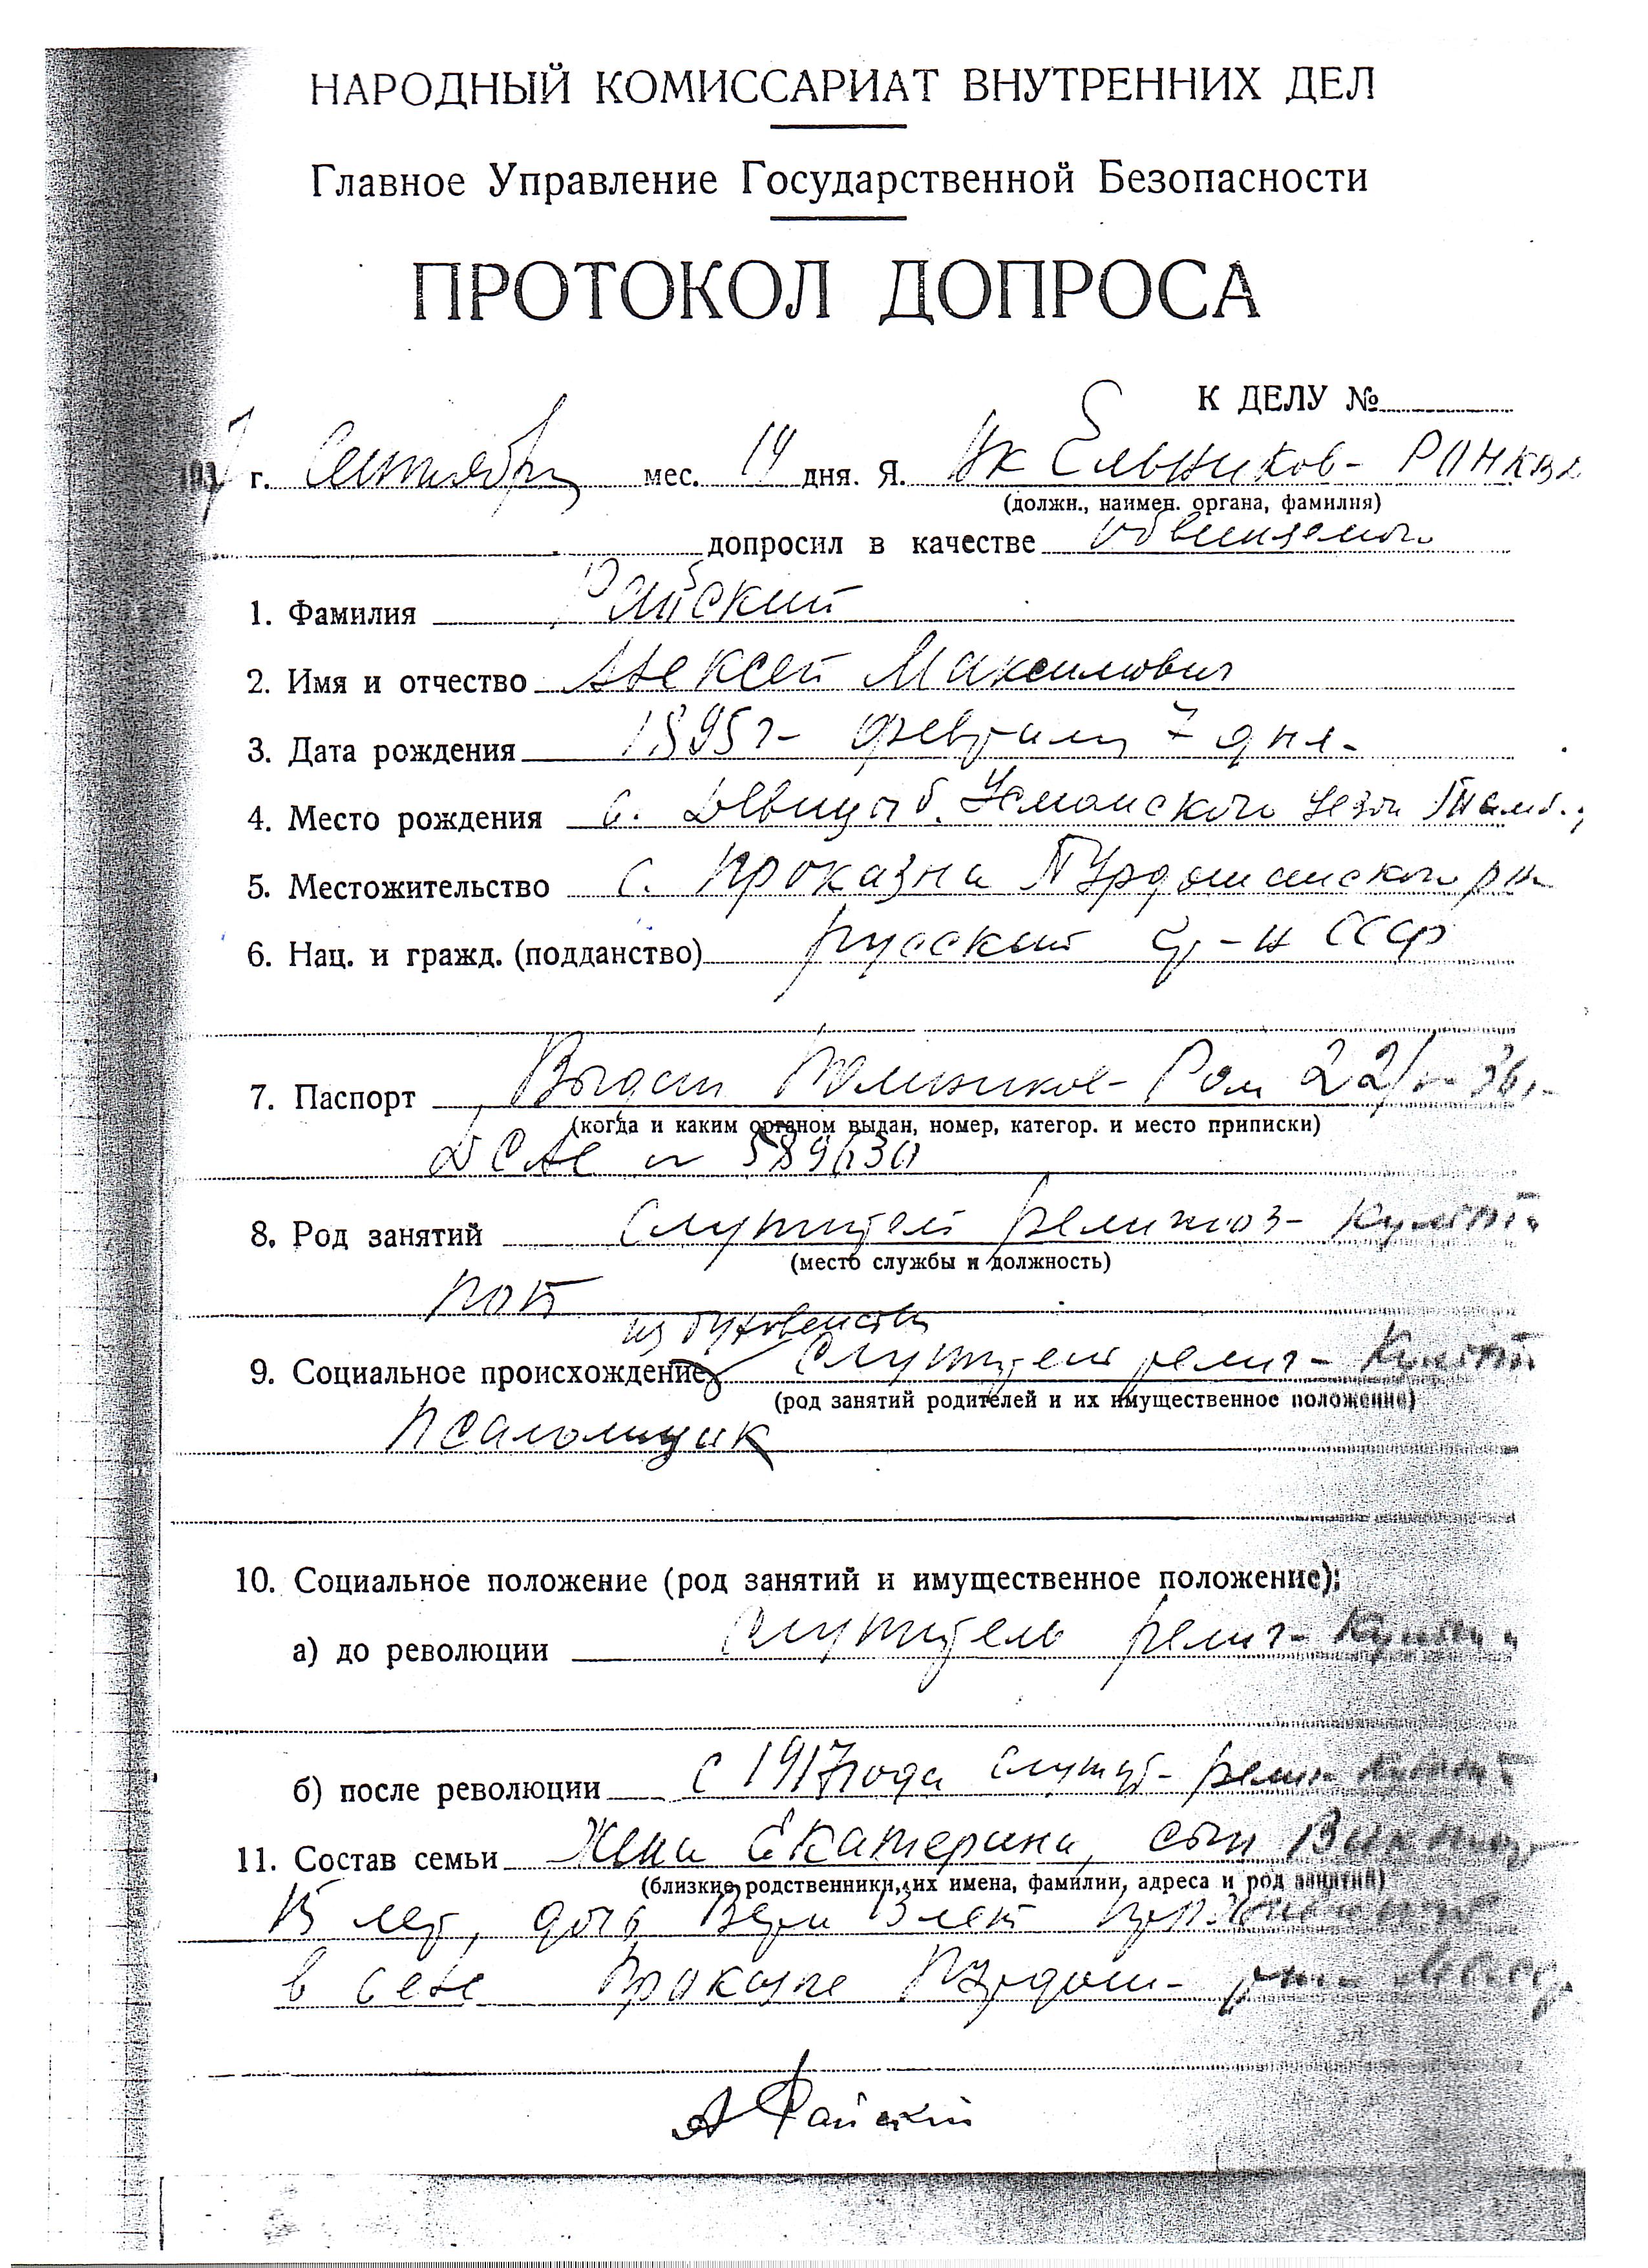 НАРОДНЫЙ КОМИССАРИАТ ВНУТРЕННИХ ДЕЛ
Главное Управление Государственной Безопасности
ПРОТОКОЛ ДОПРОСА
К ДЕЛУ №
1937 г. Сентября мес. 14 дня. Я. Ельников- РОНКВД
(должн., наимен. органа, фамилия)
допросил в качестве обвиняемого
1. Фамилия Райский
2. Имя и отчество Алексей Максимович
3. Дата рождения 1895г- февраля 7 дня-
4. Место рождения с. Девица б. Усманского уезда Тамб.
5. Местожительство с. Проказна Пурдошанского р-на
6. Нац. и гражд. (подданство) русский гр-н СССР
7. Паспорт Выдан Ром 22/ 36г-
(когда и каким органом выдан, номер, категор. и место приписки)
№ 589630
8. Род занятий служитель религиоз- культа
(место службы и должность)
поп
из духовенства
9. Социальное происхождение служителя религ- культа
(род занятий родителей и их имущественное положение)
псаломщик
10. Социальное положение (род занятий и имущественное положение):
а) до революции служитель религ- культа
б) после революции с 1917 года служит- религ- культа
11. Состав семьи Жена Екатерина, сын Виктор
(близкие родственники, их имена, фамилии, адреса и род занятий)
15 лет, дочь Вера 13 лет проживают
в селе Проказне Пурдош- р-на
А Райский